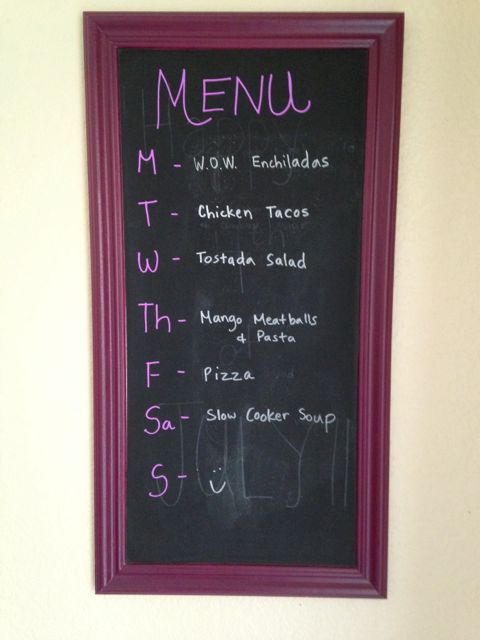 MENU
M - W.O.W. Enchiladas
T - Chicken Tacos
W - Tostada Salad
Th - Mango Meatballs
& Pasta
F - Pizza
Sa - Slow Cooker Soup
S - ü
Happy
JULY